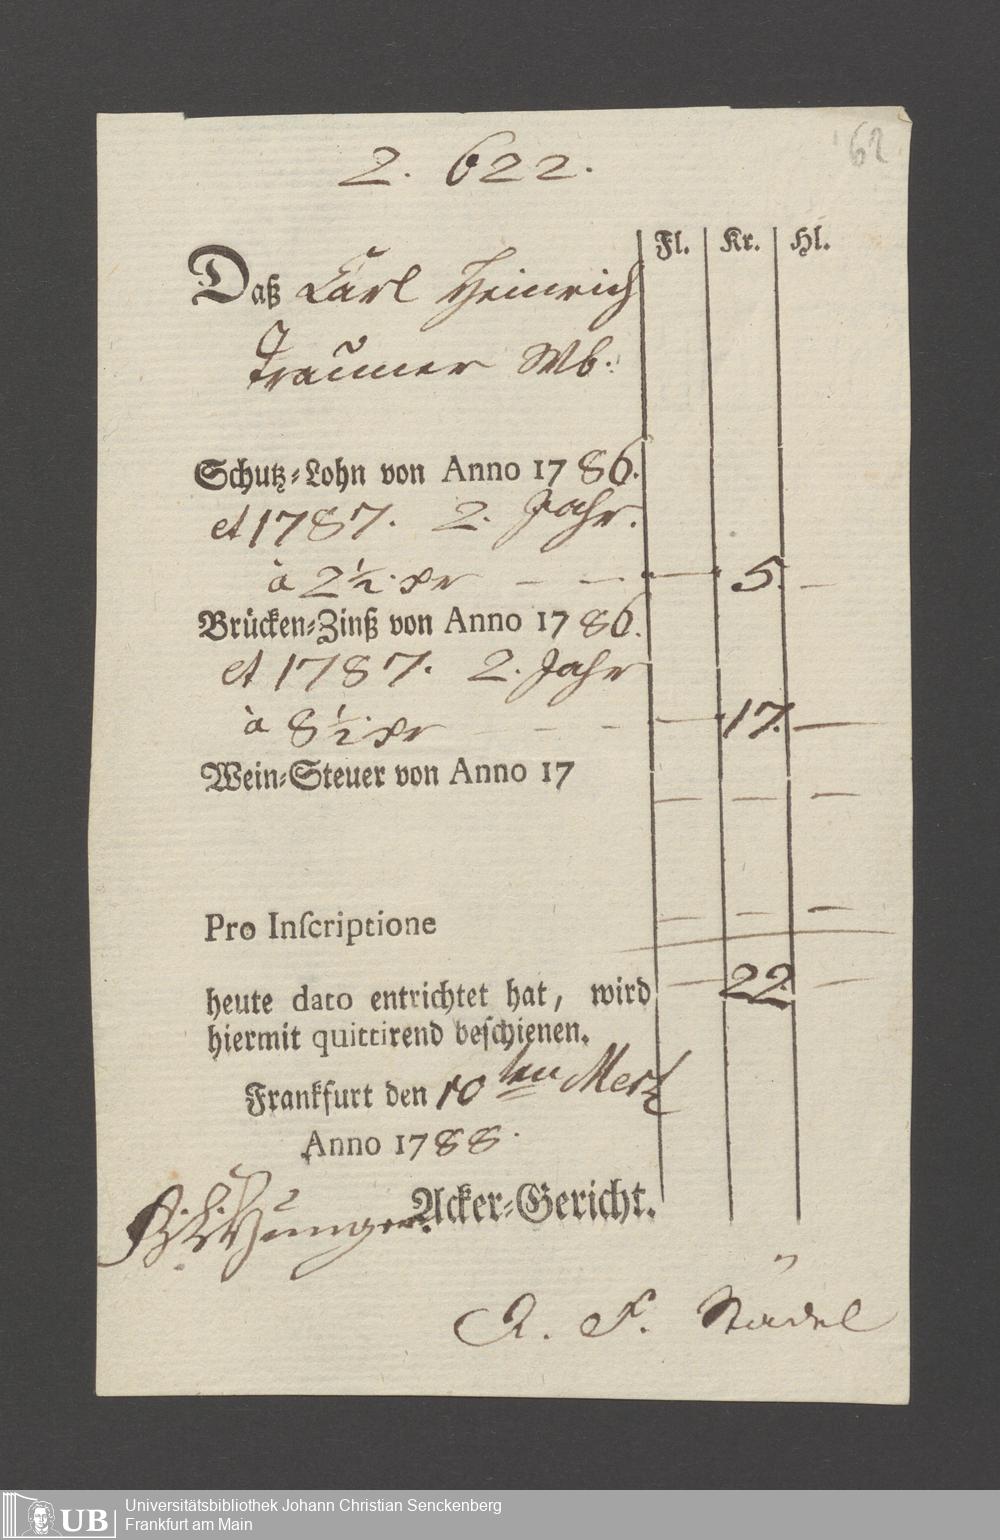 62
2. 622.
Fl. Kr. Hl.
Daß Carl Heinrich
Trauner Wb.
Schutz-Lohn von Anno 17 86.
et 1787. 2. Jahr.
à 2½ xr — — — 5. —
Brücken-Zinß von Anno 17 86.
et 1787. 2. Jahr
à 8½ xr — — — 17. —
Wein-Steuer von Anno 17
— — —
Pro Inſcriptione — — —
heute dato entrichtet hat, wird — 22. —
hiermit quittirend beſchienen.
Frankfurt den 10ten Mertz
Anno 1788.
Acker-Gericht.
Hunger.
Städel
UB
Universitätsbibliothek Johann Christian Senckenberg
Frankfurt am Main